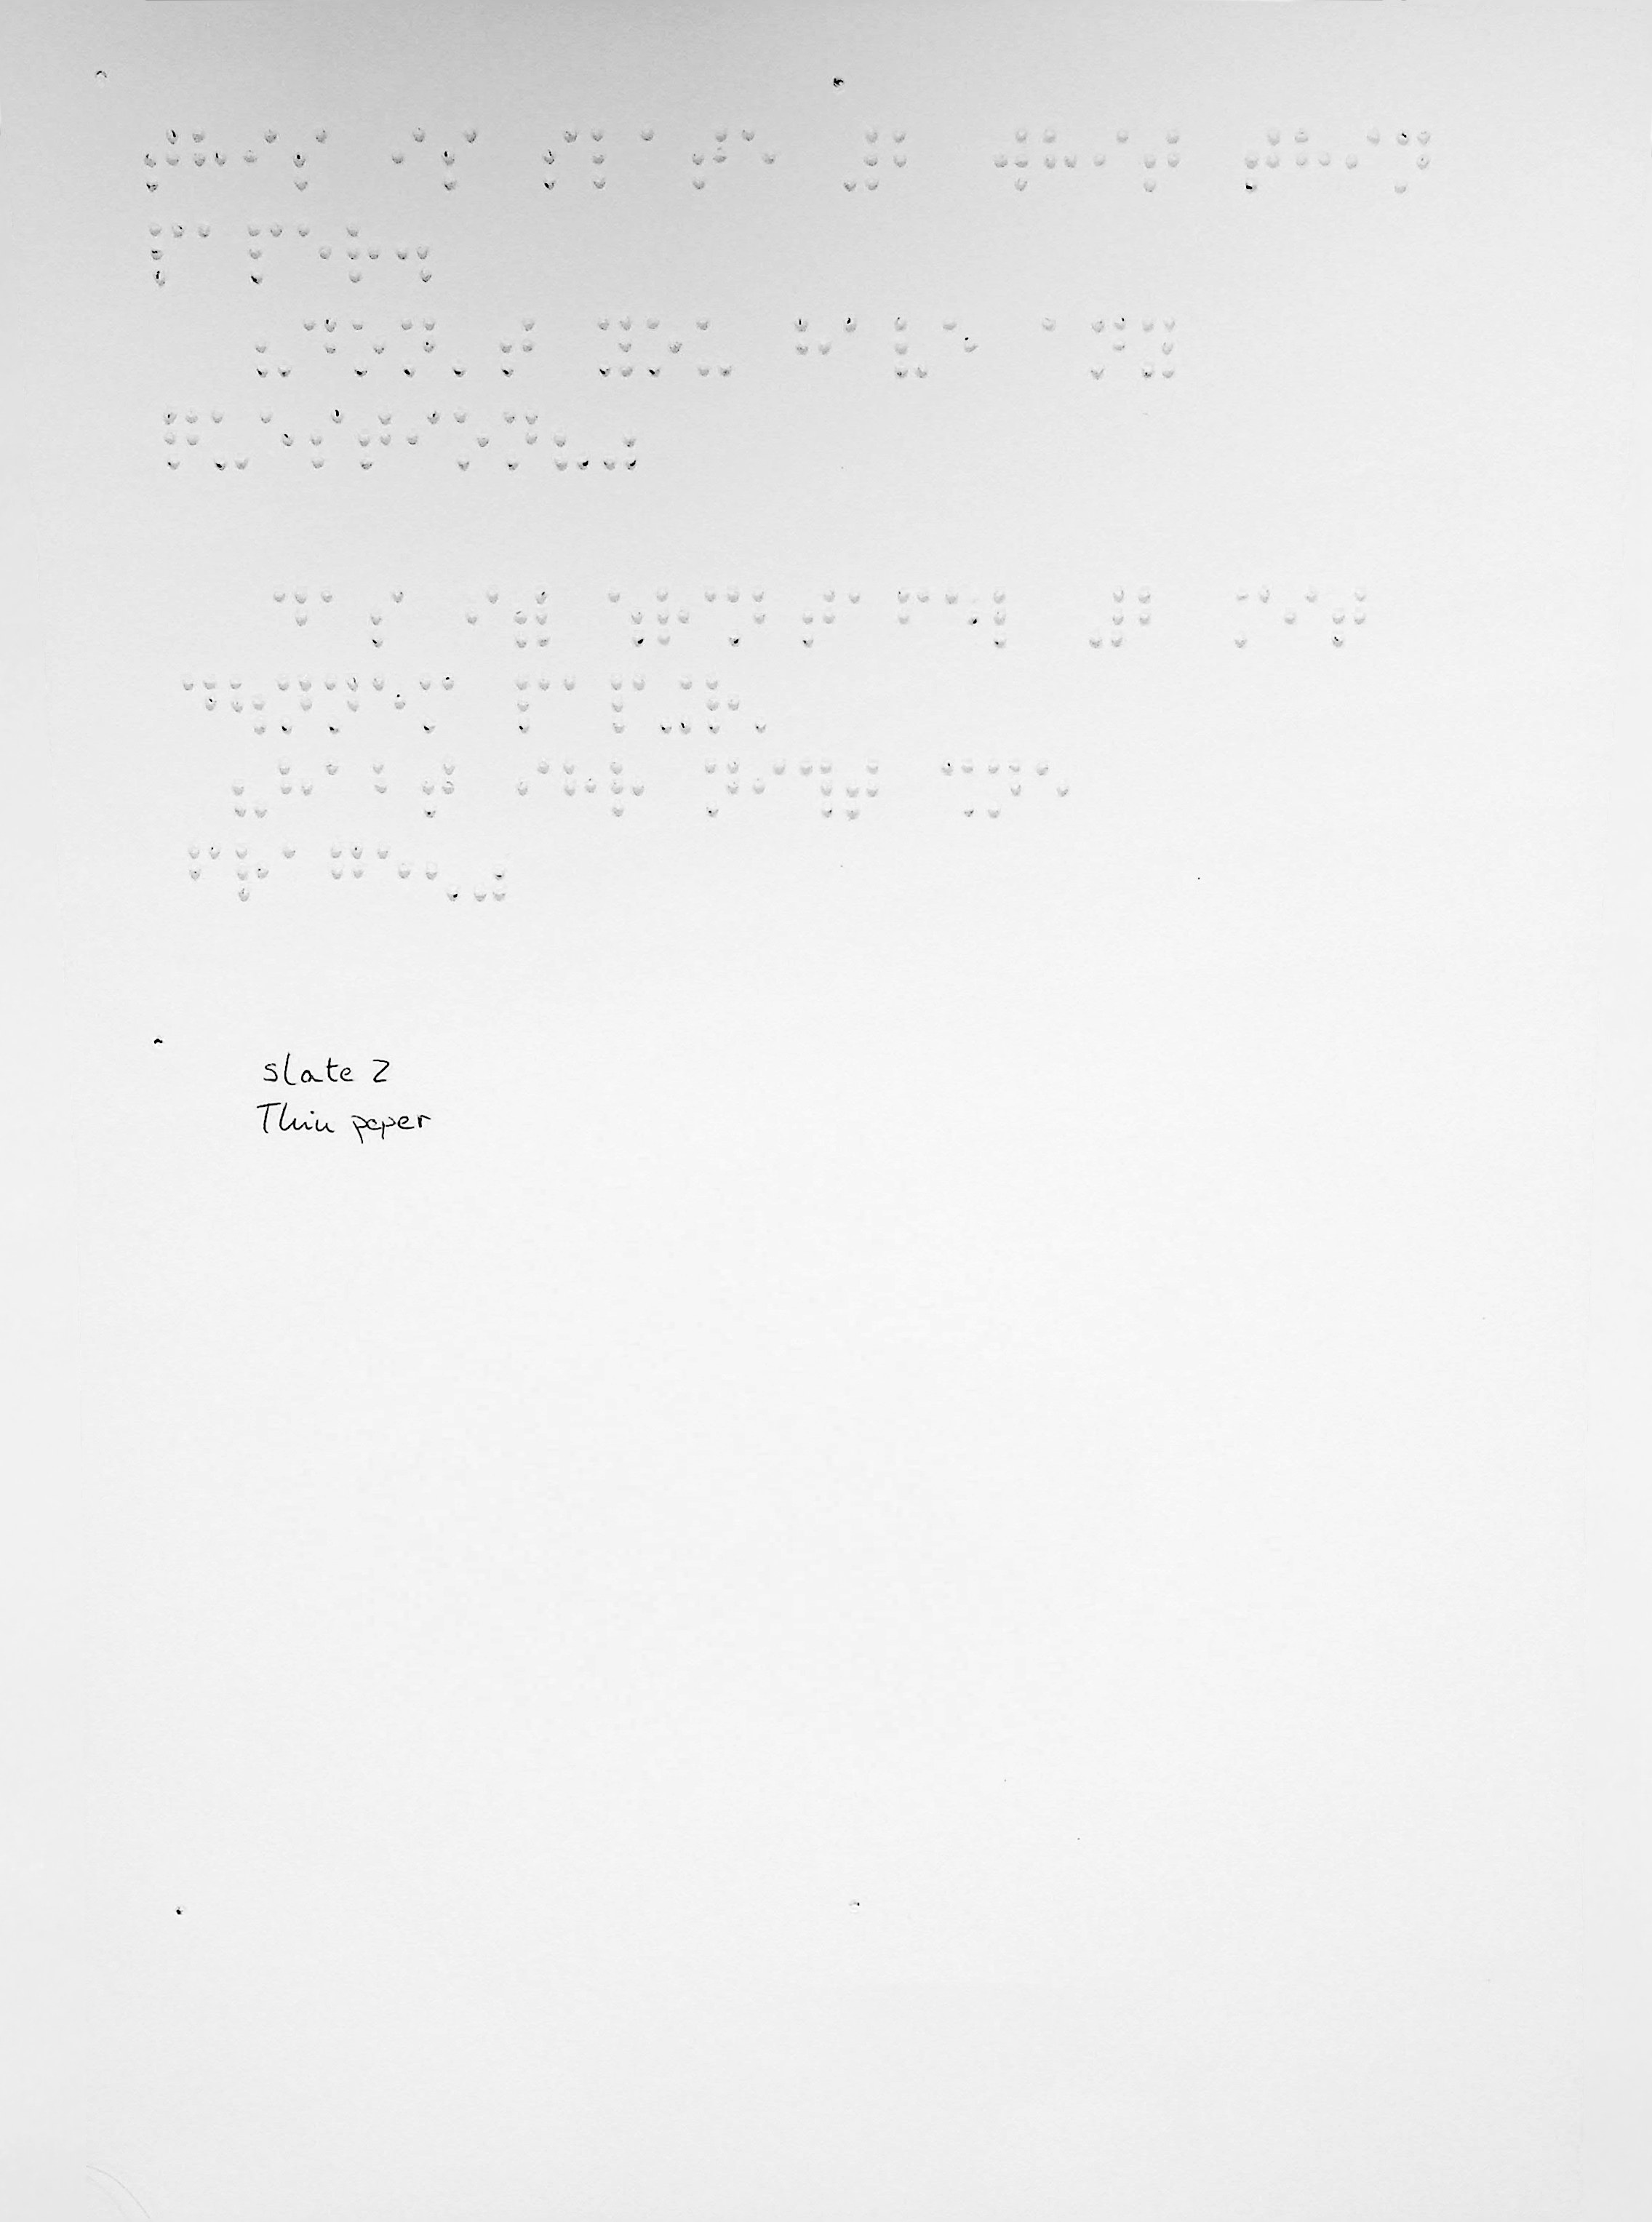 ⠞⠓⠊⠎ ⠊⠎ ⠎⠇⠁⠞⠑ ⠼⠃ ⠺⠓⠊⠞ ⠞⠓⠊⠝
⠏⠁⠏⠑⠗⠲
⠦⠙⠕⠝⠄⠞ ⠽⠕⠥ ⠓⠁⠧⠑ ⠁⠝⠽
⠟⠥⠑⠎⠞⠊⠕⠝⠦⠴
⠙⠁⠎ ⠊⠾ ⠱⠗⠩⠃⠞⠁⠋⠑⠇ ⠼⠃ ⠍⠊⠞
⠙⠳⠝⠝⠑⠍ ⠏⠁⠏⠬⠗⠄
⠦⠓⠁⠃⠞ ⠊⠓⠗ ⠝⠊⠹⠞ ⠩⠝⠑
⠋⠗⠁⠛⠑⠢⠴
slate 2
Thin paper